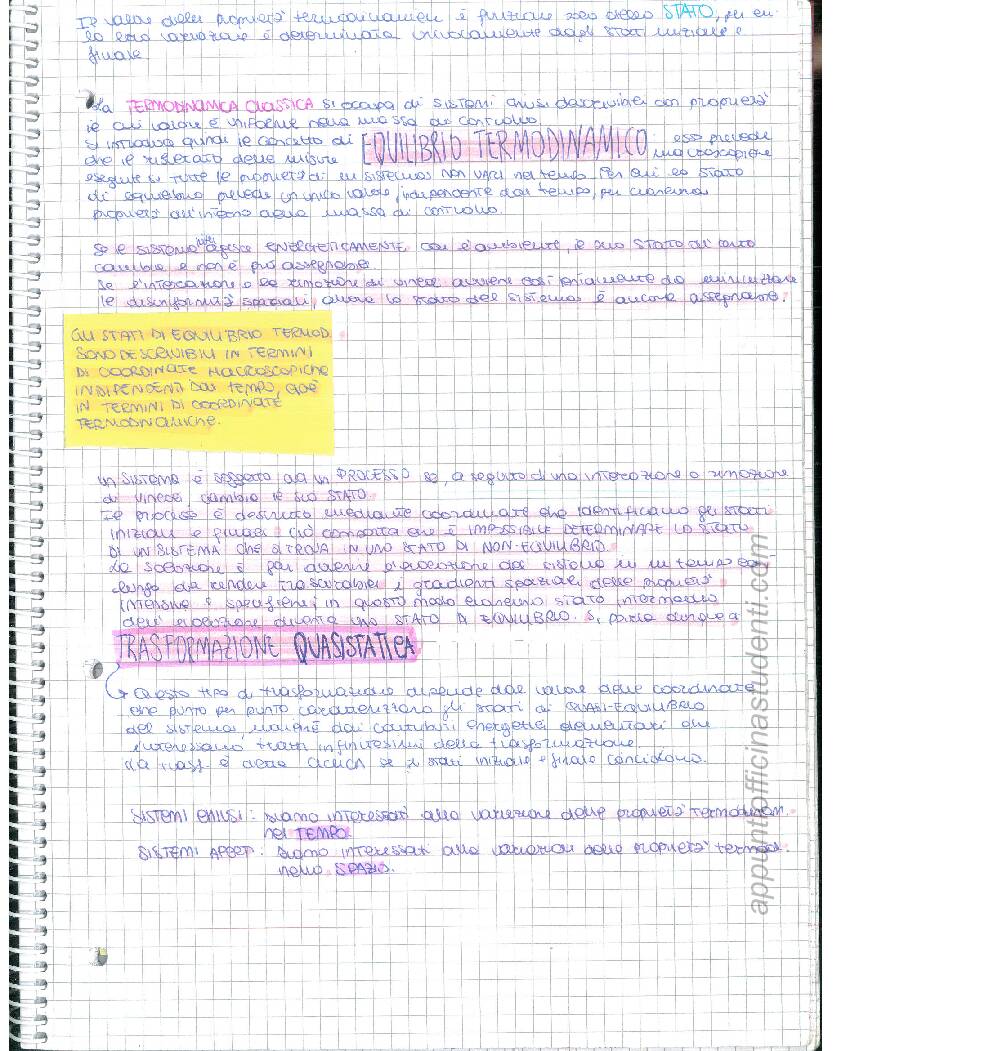 Il valore delle proprietà termodinamiche è funzione solo dello STATO, per cui
la loro variazione è determinata univocamente dagli stati iniziale e
finale.
La TERMODINAMICA CLASSICA si occupa di SISTEMI chiusi descrivibili con proprietà
il cui valore è uniforme nella massa di controllo.
Si introduce quindi il concetto di EQUILIBRIO TERMODINAMICO esso prevede
che il risultato delle misure macroscopiche
eseguite su tutte le proprietà di un sistema NON VARI nel tempo. Per cui lo STATO
di equilibrio prevede un unico valore, indipendente dal tempo, per ciascuna
proprietà all'interno della massa di controllo.
Se il SISTEMA interagisce ENERGETICAMENTE con l'ambiente, il suo STATO di
cambia e non è più assegnabile.
Se l'interazione o la rimozione di vincoli avviene così lentamente da minimizzare
le disuniformità spaziali, allora lo stato del sistema è ancora assegnabile.
GLI STATI DI EQUILIBRIO TERMOD.
SONO DESCRIVIBILI IN TERMINI
DI COORDINATE MACROSCOPICHE
INDIPENDENTI DAL TEMPO, CIOÈ
IN TERMINI DI COORDINATE
TERMODINAMICHE.
Un SISTEMA è soggetto ad un PROCESSO se, a seguito di una interazione o rimozione
di vincoli, cambia il suo STATO.
Il processo è descritto mediante coordinate che identificano gli stati
iniziali e finali. Ciò comporta che è IMPOSSIBILE DETERMINARE LO STATO
DI UN SISTEMA CHE SI TROVA IN UNO STATO DI NON-EQUILIBRIO.
La soluzione è far avvenire l'evoluzione del sistema in un tempo così
lungo da rendere trascurabili i gradienti spaziali delle proprietà
intensive e specifiche; in questo modo ciascuno stato intermedio
dell'evoluzione diventa UNO STATO DI EQUILIBRIO. Si parla dunque di
TRASFORMAZIONE QUASISTATICA
Questo tipo di trasformazione dipende dal valore delle coordinate
che punto per punto caratterizzano gli stati di QUASI-EQUILIBRIO
del sistema, nonché dai contributi energetici elementari che
interessano tratti infinitesimi della trasformazione.
La trasf. è detta CICLICA se gli stati iniziale e finale coincidono.
SISTEMI CHIUSI: siamo interessati alla variazione delle proprietà termodinam.
nel TEMPO.
SISTEMI APERTI: siamo interessati alle variazioni delle proprietà termod.
nello SPAZIO.
appuntiofficinastudenti.com